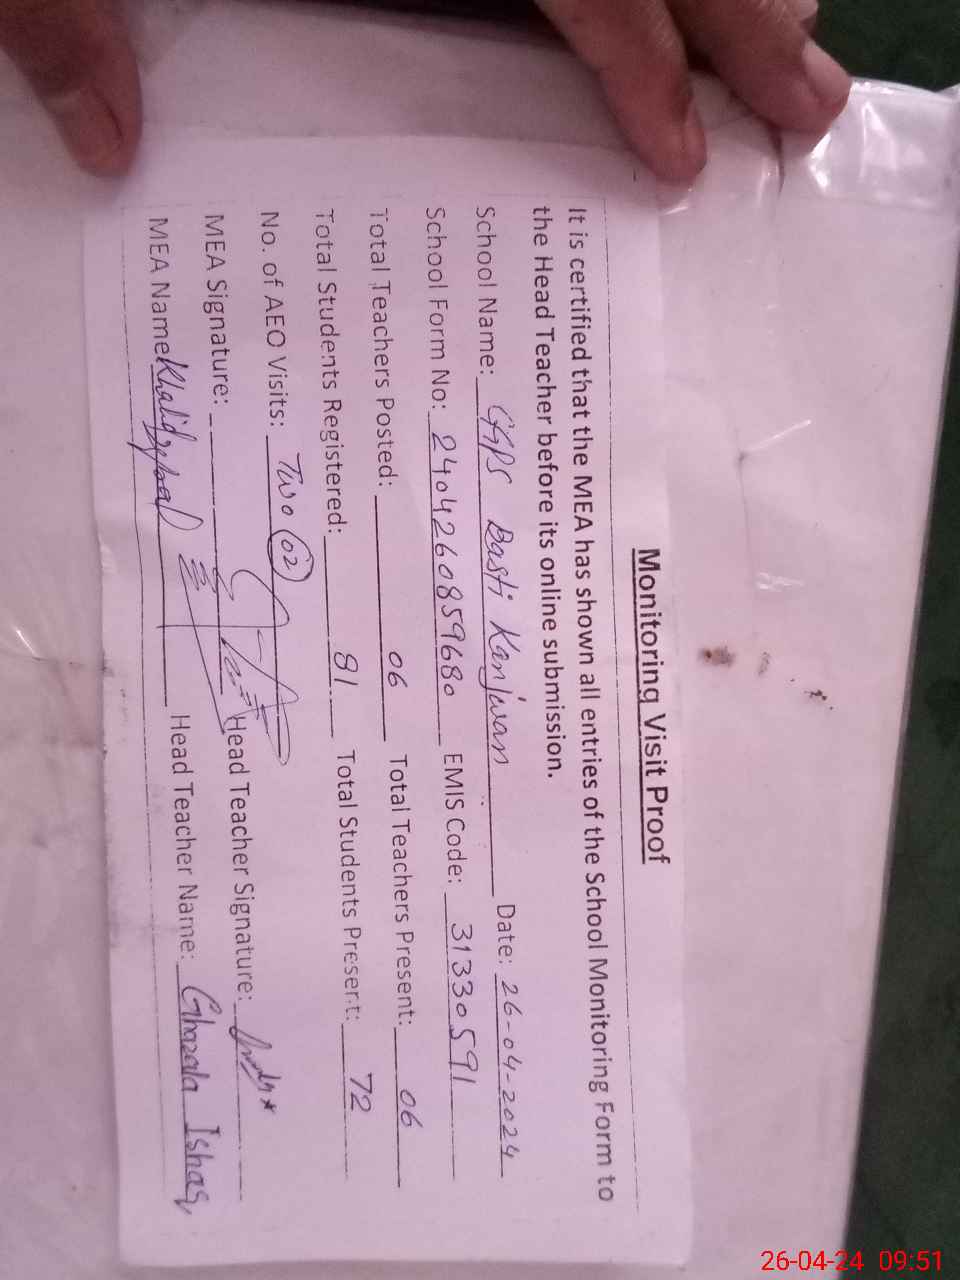 Monitoring Visit Proof
It is certified that the MEA has shown all entries of the School Monitoring Form to
the Head Teacher before its online submission.
School Name: GGPS Basti Kanjwan Date: 26-04-2024
School Form No: 2404260859680 EMIS Code: 31330591
Total Teachers Posted: 06 Total Teachers Present: 06
Total Students Registered: 81 Total Students Present: 72
No. of AEO Visits: Two (02)
MEA Signature: Head Teacher Signature:
MEA Name Khalid Iqbal Head Teacher Name: Ghazala Ishaq
26-04-24 09:51